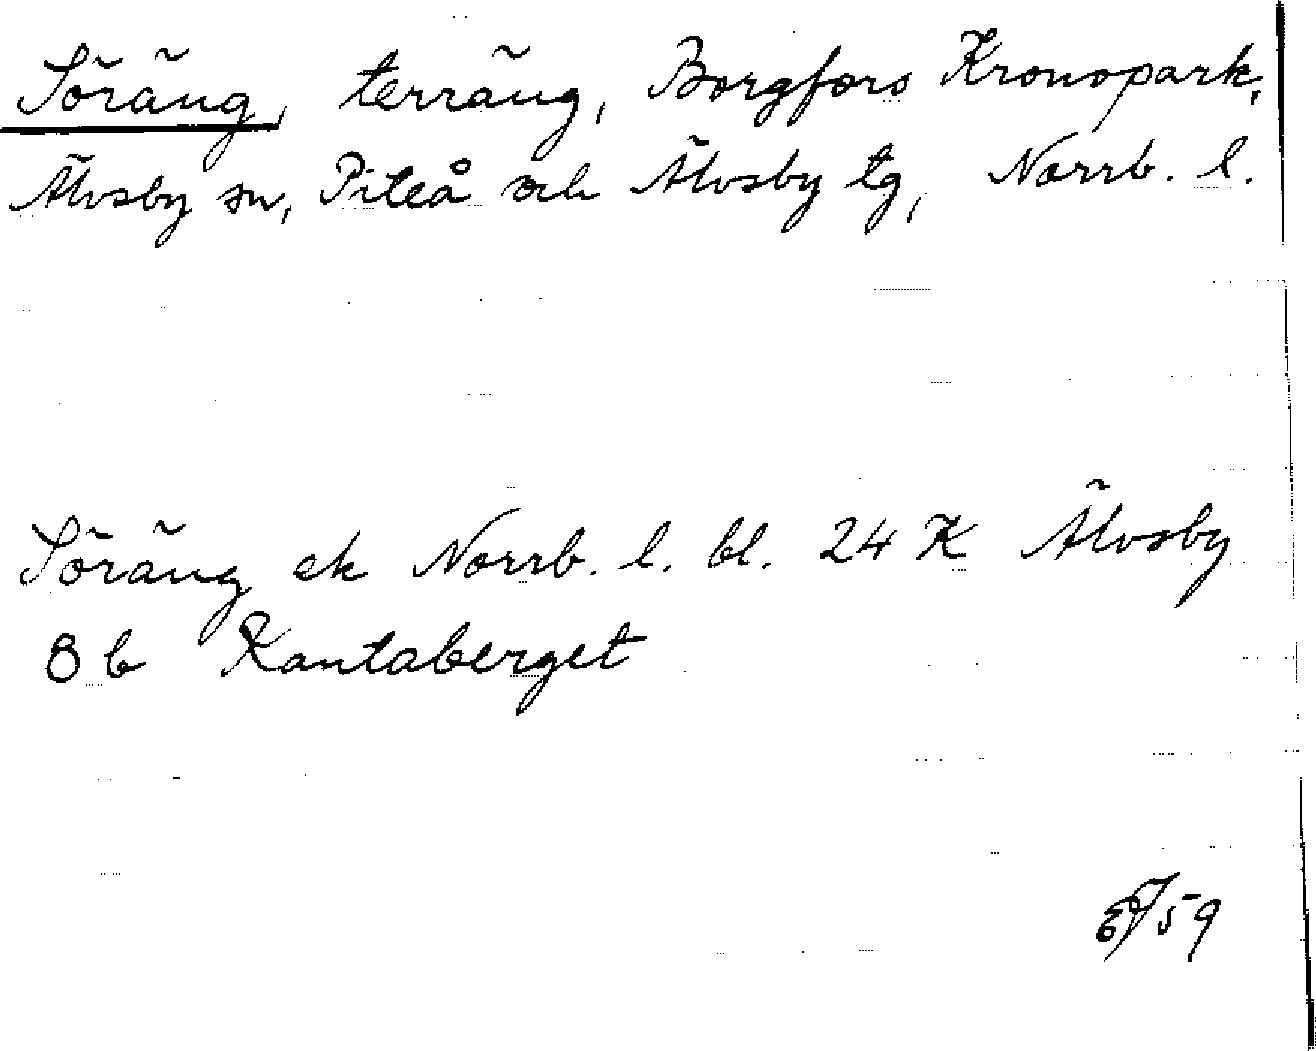 Söräng, terräng, Borgfors Kronopark,
Älvsby sn, Piteå och Älvsby tg, Norrb. l.
Söräng ek Norrb. l. bl. 24 K Älvsby
8 b Kantaberget
59